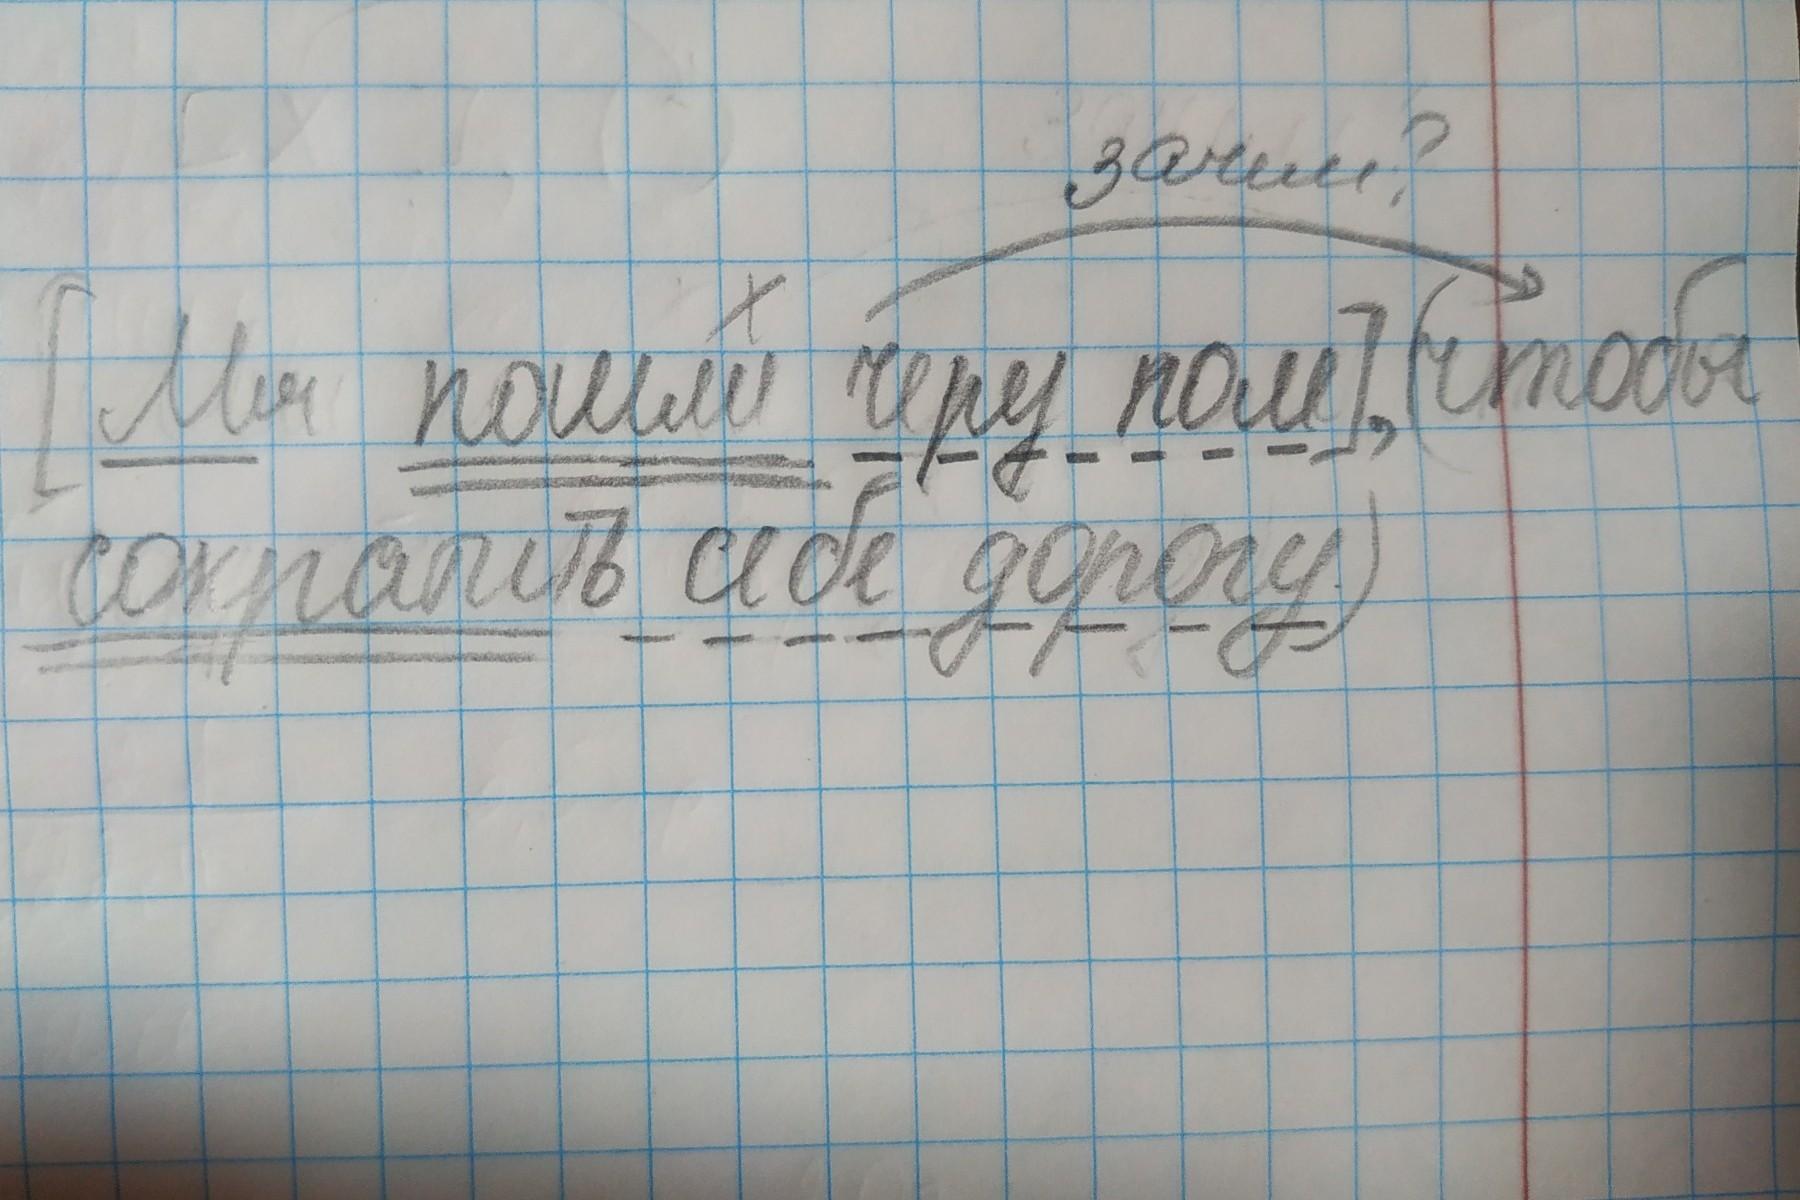 зачем?
[Мы пошли через поле], (чтобы
сократить себе дорогу)